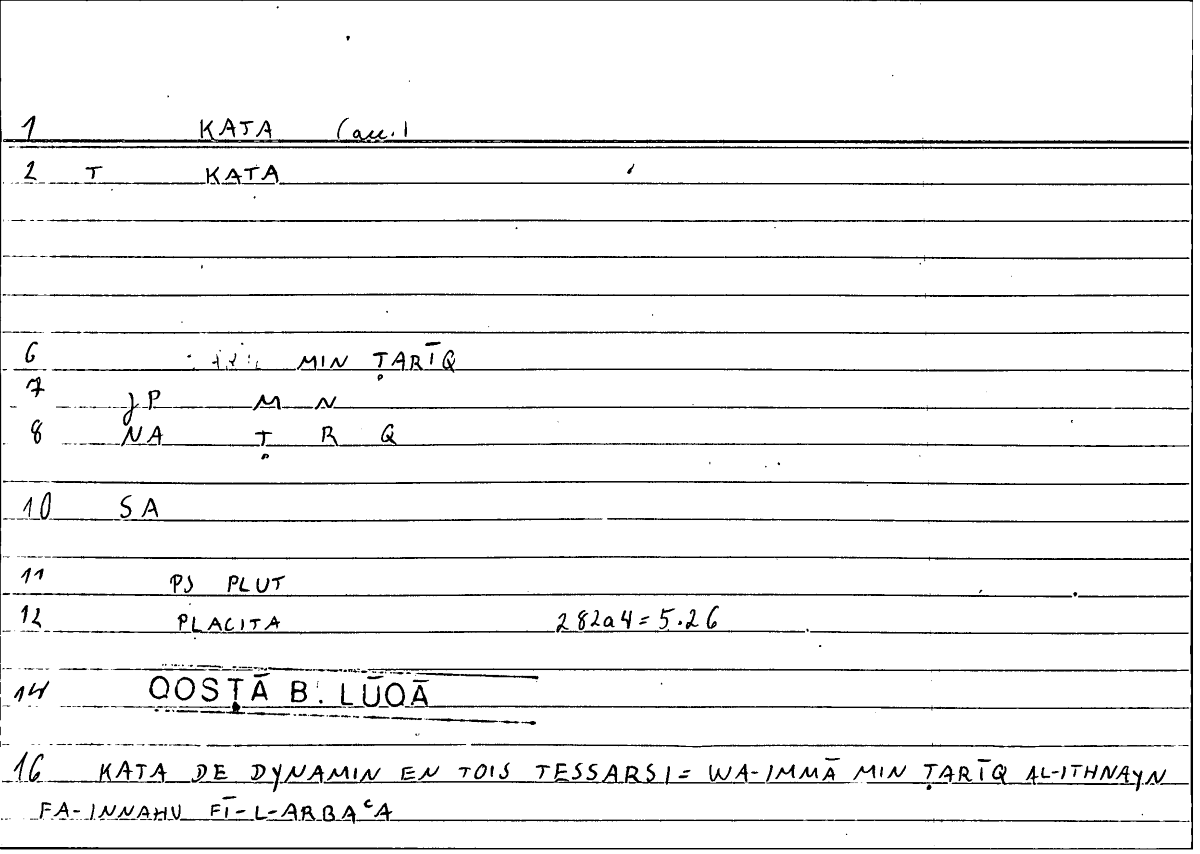 1 KATA (acc.)
2 T KATA
6 MIN ṬARĪQ
7 JP M N
8 NA Ṭ R Q
10 SA
11 PS PLUT
12 PLACITA 282a4=5.26
14 QOSṬĀ B. LŪQĀ
16 KATA DE DYNAMIN EN TOIS TESSARSI = WA-IMMĀ MIN ṬARĪQ AL-ITHNAYN
FA-INNAHU FĪ-L-ARBAᶜA